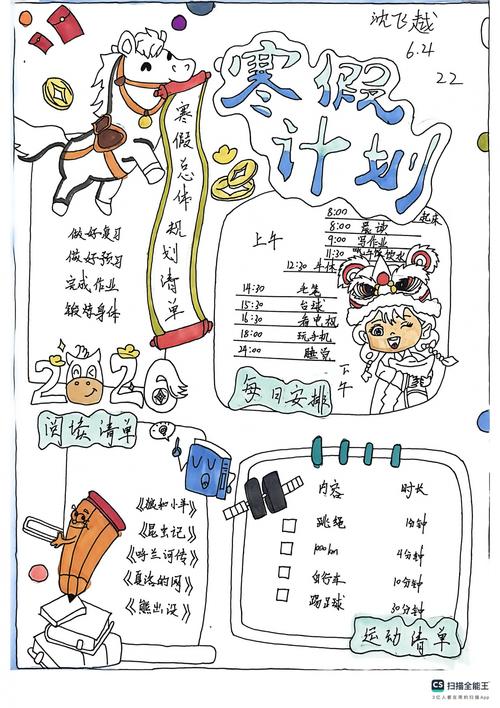 沈飞越
6.4
22
寒假
计划
寒假总体规划清单
做好复习
做好预习
完成作业
锻炼身体
2026
上午
8:00 起床
8:00 晨读
9:00 写作业
12:30 午休
14:30 毛笔
15:30 台球
16:30 看电视
18:00 玩手机
24:00 睡觉
下午
每日安排
阅读清单
《狼和小羊》
《昆虫记》
《呼兰河传》
《夏洛的网》
《熊出没》
内容 时长
跳绳 1分钟
1000km 4分钟
自行车 10分钟
踢足球 30分钟
运动清单
CS 扫描全能王
3亿人都在用的扫描App